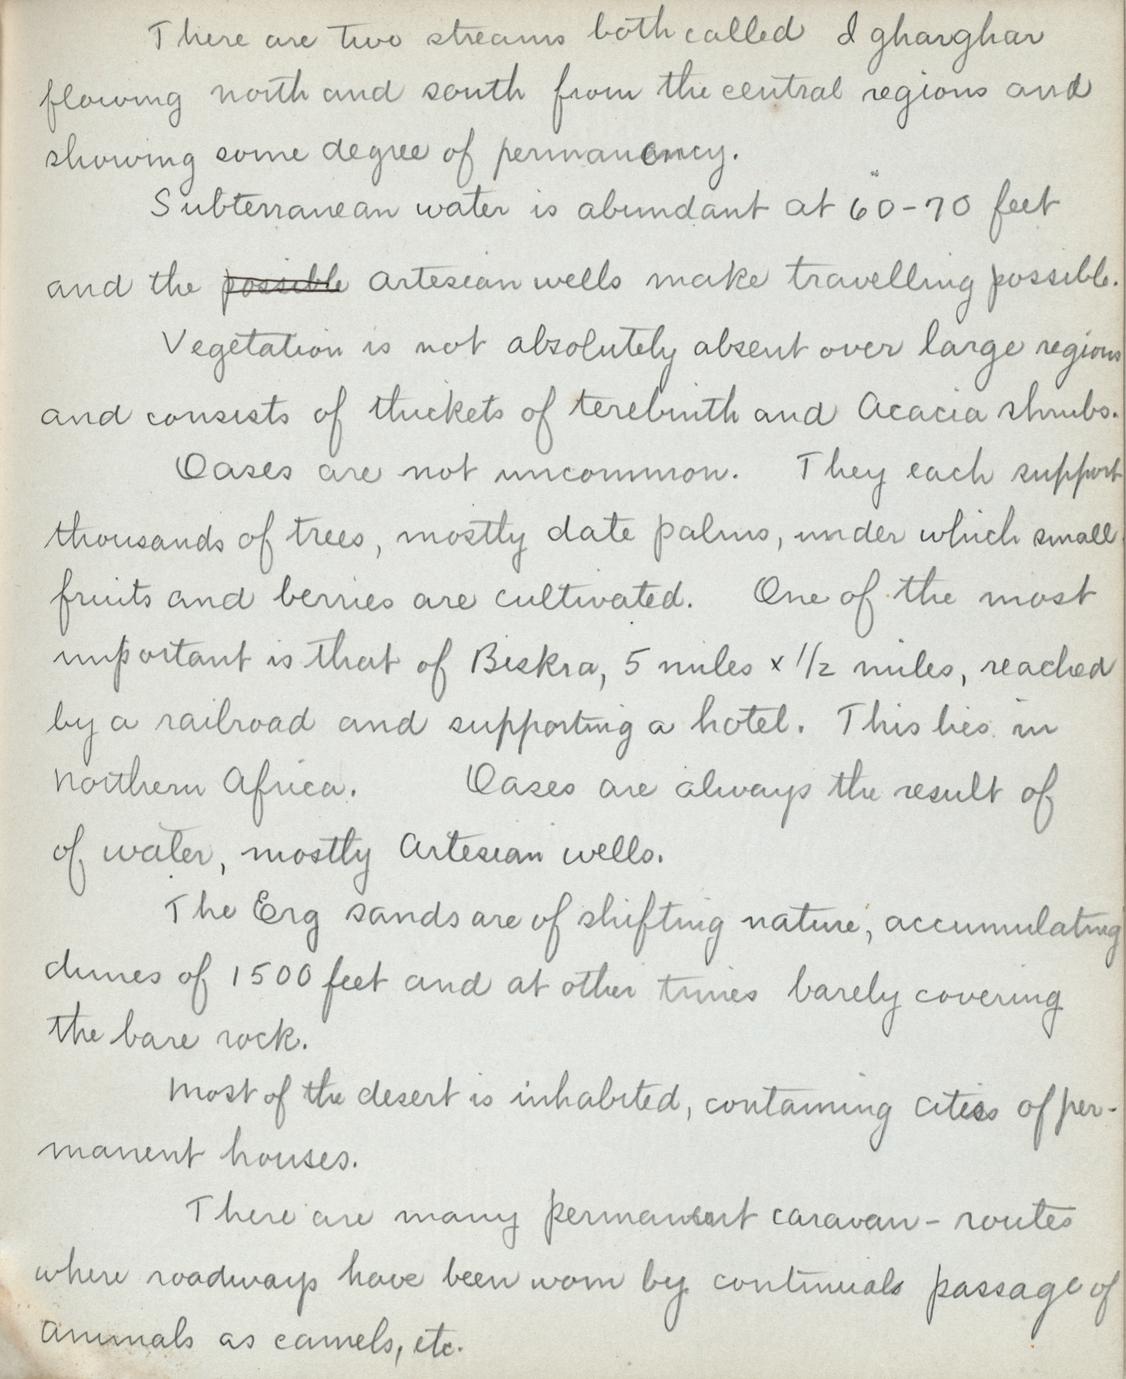 There are two streams both called Igharghar
flowing north and south from the central regions and
showing some degree of permanency.
Subterranean water is abundant at 60-70 feet
and the possible Artesian wells make travelling possible.
Vegetation is not absolutely absent over large regions
and consists of thickets of terebinth and Acacia shrubs.
Oases are not uncommon. They each support
thousands of trees, mostly date palms, under which small
fruits and berries are cultivated. One of the most
important is that of Biskra, 5 miles x 1/2 miles, reached
by a railroad and supporting a hotel. This lies in
northern Africa. Oases are always the result of
of water, mostly Artesian wells.
The Erg sands are of shifting nature, accumulating
dunes of 1500 feet and at other times barely covering
the bare rock.
Most of the desert is inhabited, containing cities of per-
manent houses.
There are many permanent caravan-routes
where roadways have been worn by continuals passage of
animals as camels, etc.